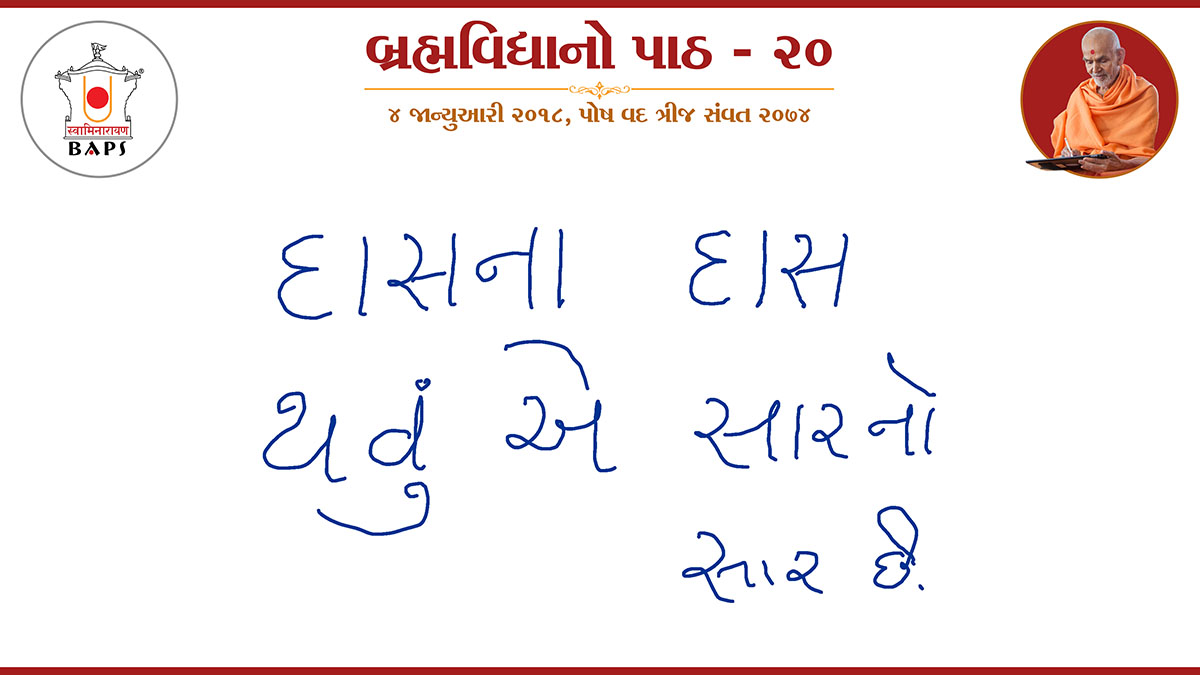 બ્રહ્મવિદ્યાનો પાઠ - ૨૦
૪ જાન્યુઆરી ૨૦૧૮, પોષ વદ ત્રીજ સંવત ૨૦૭૪
स्वामिनारायण
BAPS
દાસના દાસ
થવું એ સારનો
સાર છે.